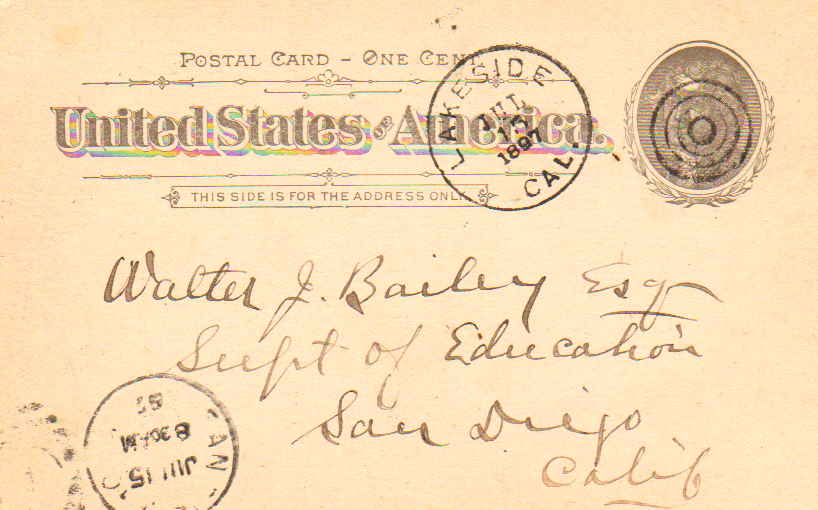 POSTAL CARD – ONE CENT
United States of America.
THIS SIDE IS FOR THE ADDRESS ONLY.
LAKESIDE
JUL
15
1897
CAL.
Walter J. Bailey Esq
Supt of Education
San Diego
Calif
SAN
JUL 15
8 30 AM
97